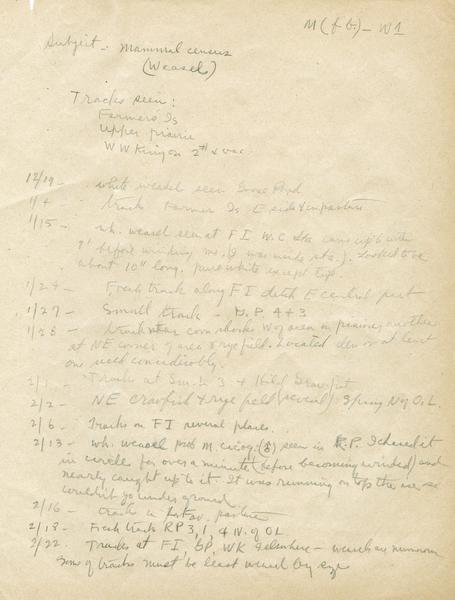 M (f b.) - W1
Subject - Mammal census
(Weasel)
Tracks seen:
Farmers Is
Upper prairie
W W King on 2nd & vac
12/19 - white weasel seen Goose Pond
1/4 - tracks Farmer Is E side & in pasture
1/15 - wh. weasel seen at F I W.C Sta came up to within
9' before winding me. (I was inside sta.). Looked to be
about 10" long, pure white except tip.
1/24 - Fresh track along F I ditch E central part
1/27 - Small track - R.P. 4 + 3
1/28 - tracks corn shocks W of area on prairie another
at NE corner of area & rye field. Located den or at least
one used considerably.
Tracks at 3 +
2/2 - NE Crawfish & rye field (several) Spring N of O.L.
2/6 - Tracks on F I several places.
2/13 - wh. weasel prob M. cicog. (♂) seen in R.P. I chased it
in circles for over a minute (before becoming winded) and
nearly caught up to it. It was running on top the ice - so
couldn't go under ground.
2/16 - track in pasture
2/18 - Fresh track RP 3, 1, 4 N. of O L.
2/22 - Tracks at F I, WK & elsewhere - weasel are numerous
Some of tracks must be least weasel by size